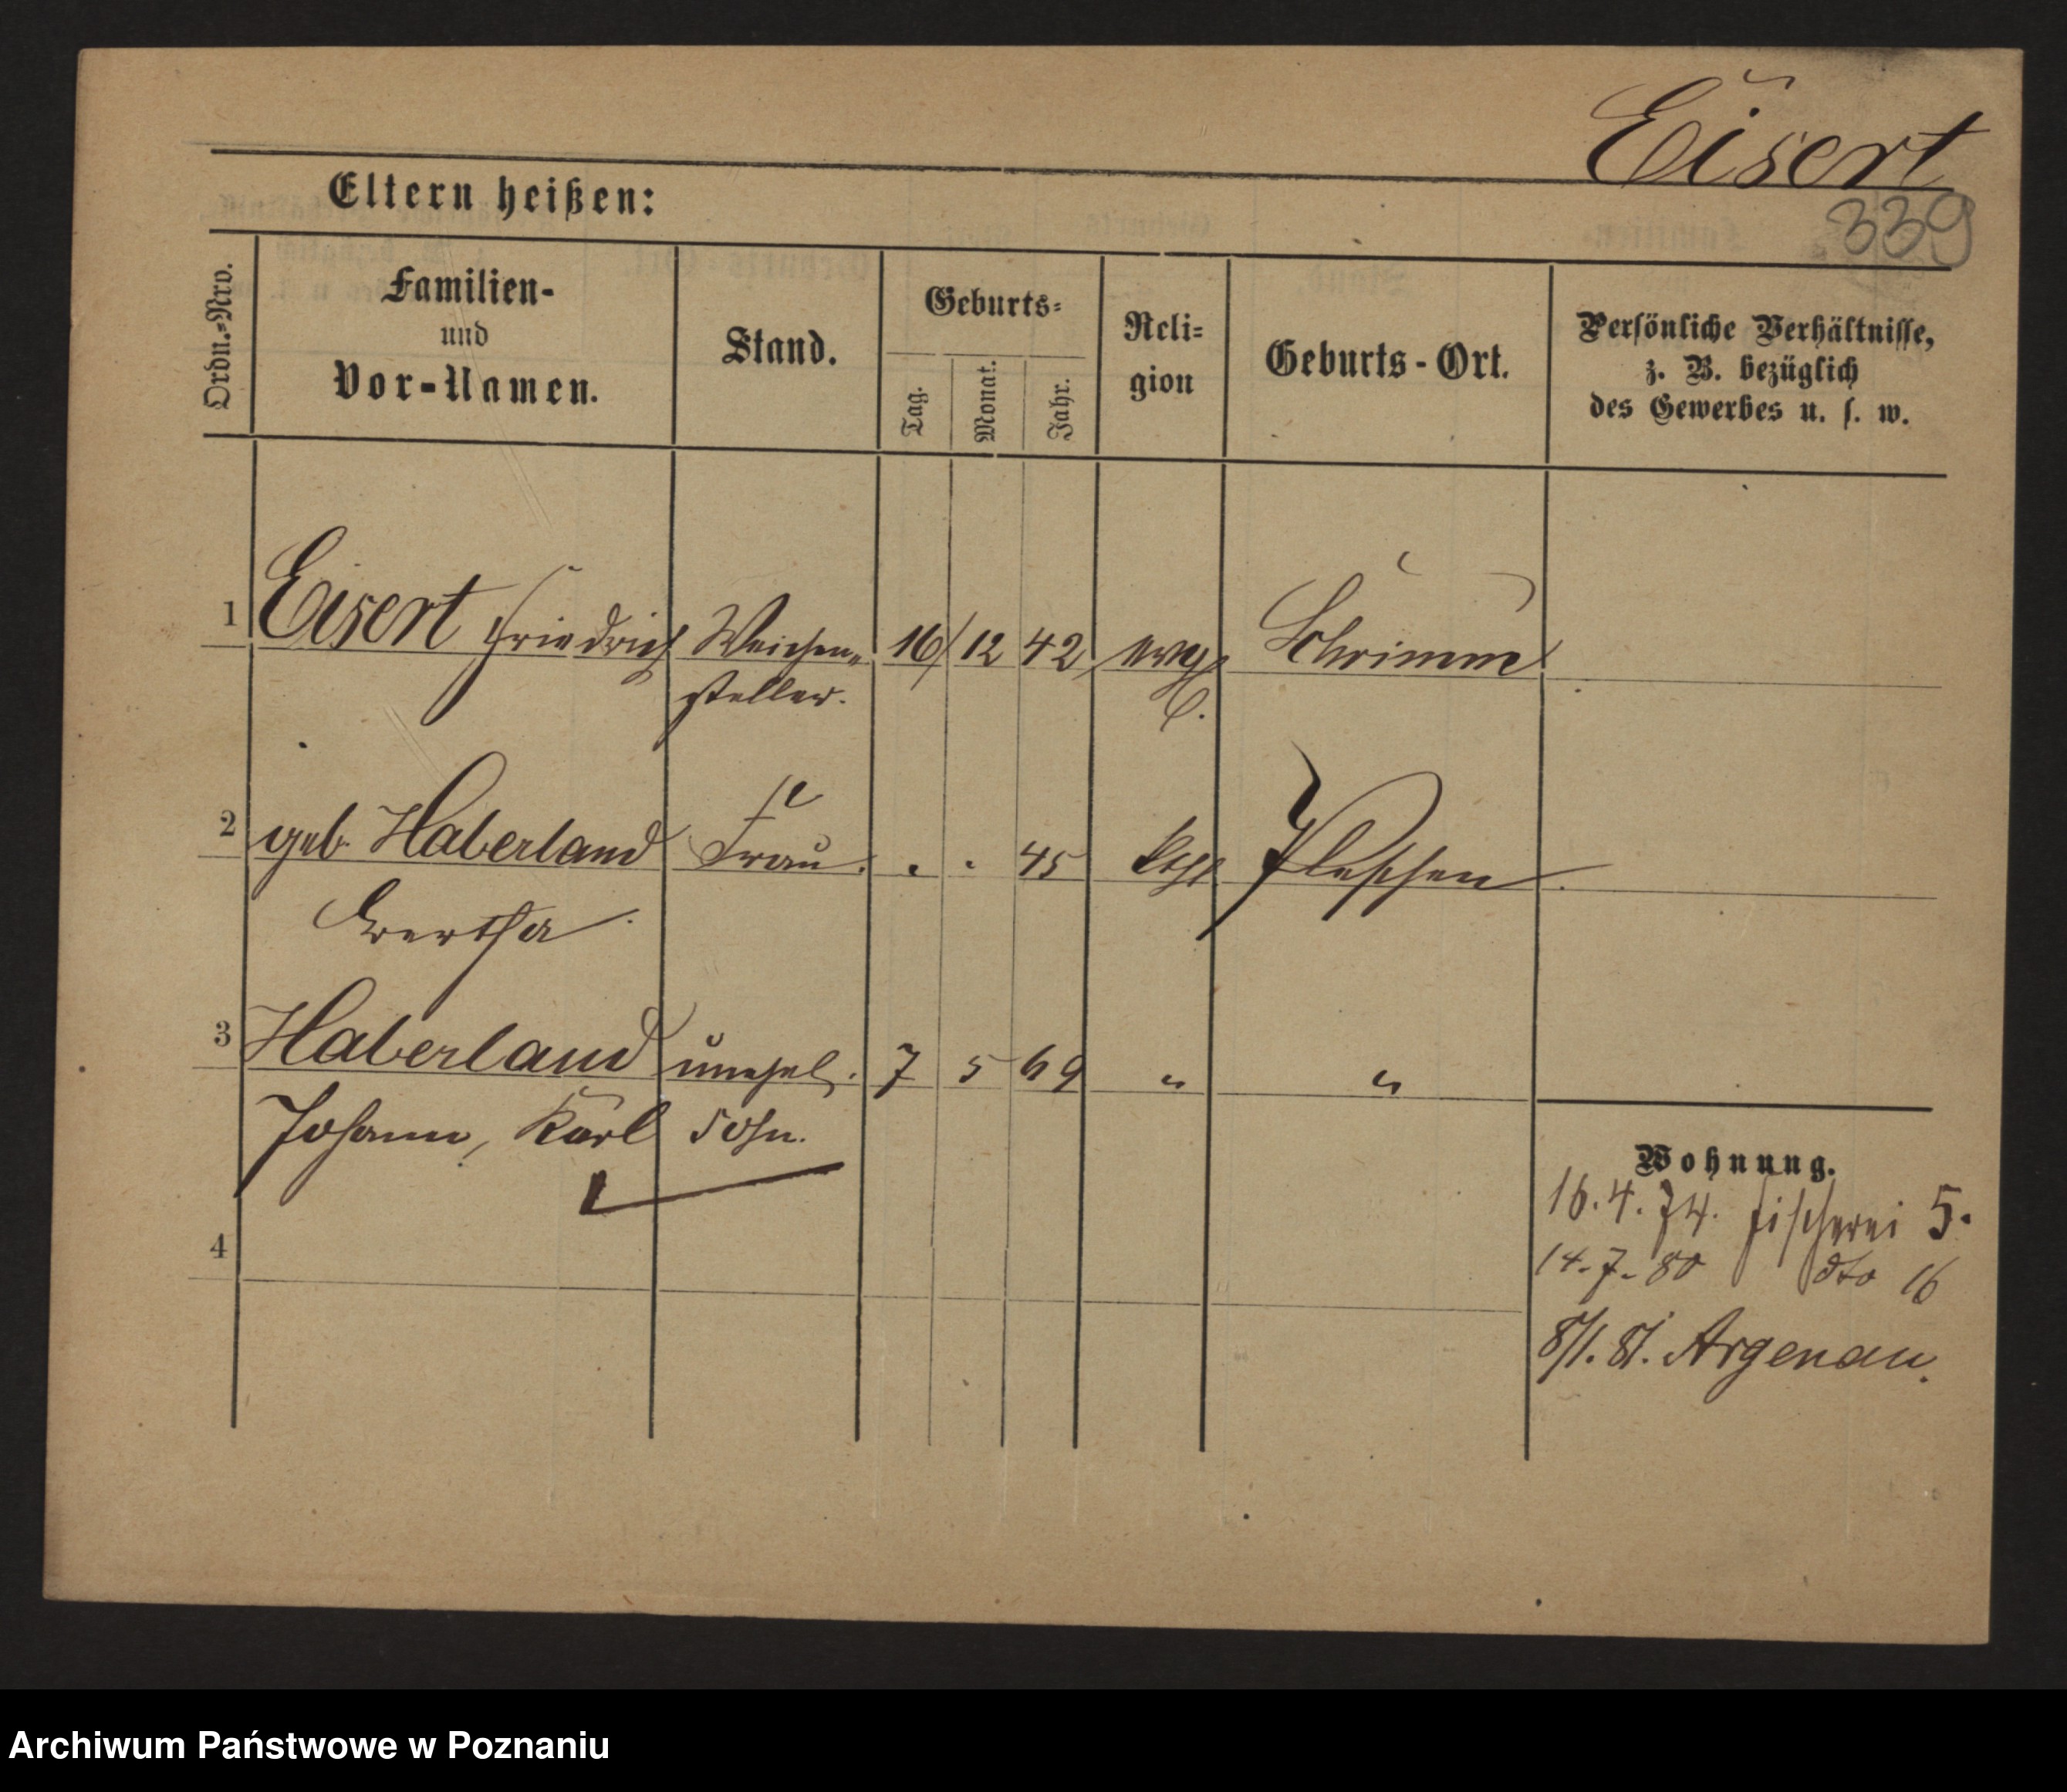 Eisert
339
Eltern heißen:
Ordn.-Nro.
Familien-
und
Vor-Namen.
Stand.
Geburts-
Tag.
Monat.
Jahr.
Reli-
gion
Geburts-Ort.
Persönliche Verhältnisse,
z. B. bezüglich
des Gewerbes u. s. w.
1 Eisert Friedrich Weichen- 16/ 12 42 evg Schrimm
steller.
2 geb. Haberland Frau. 45 kth Pleschen
Bertha
3 Haberland unehel. 7 5 69 " "
Johann, Karl Sohn.
4
Wohnung.
16.4.74. Fischerei 5.
14.7.80 dto 16
8/1.81. Argenau.
Archiwum Państwowe w Poznaniu